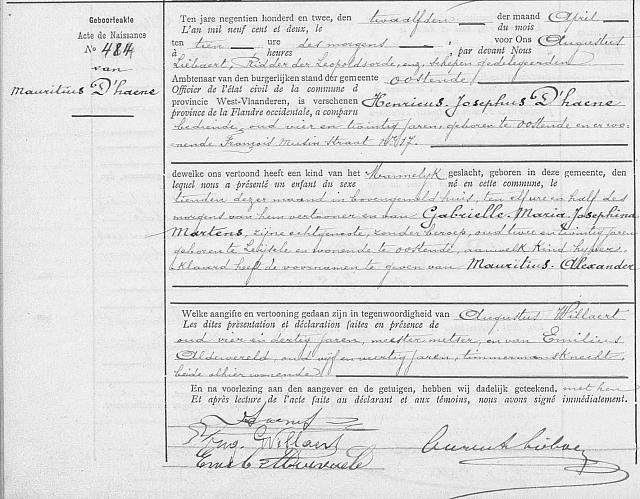 Geboorteakte
Acte de Naissance
No 484
van
Mauritius D'haene
Ten jare negentien honderd en twee, den twaalfden der maand April
L'an mil neuf cent et deux, le du mois
ten tien ure des morgens voor Ons Augustus
à heures par devant Nous
Liebaert, Ridder der Leopoldsorde, enz, Schepen gedelegeerden
Ambtenaar van den burgerlijken stand der gemeente Oostende
Officier de l'état civil de la commune d
provincie West-Vlaanderen, is verschenen Henricus Josephus D'haene
province de la Flandre occidentale, a comparu
bediende, oud vier en twintig jaren, geboren te Oostende en er wo-
nende François Musin straat No 17.
dewelke ons vertoond heeft een kind van het Mannelijk geslacht, geboren in deze gemeente, den
lequel nous a présenté un enfant du sexe né en cette commune, le
tienden dezer maand in bovengemeld huis, ten elf ure en half des
morgens van hem vertooner en van Gabrielle Maria Josephina
Martens, zijne echtgenoote, zonder beroep, oud twee en twintig jaren
geboren te en wonende te Oostende, aan welk kind hij ver-
klaard heeft de voornamen te geven van Mauritius Alexander
Welke aangifte en vertooning gedaan zijn in tegenwoordigheid van Augustus Willaert
Les dites présentation et déclaration faites en présence de
oud vier en dertig jaren, meester metser, en van Emilius
Aldeweireld, oud vijf en veertig jaren, timmermansknecht
beide alhier wonende
En na voorlezing aan den aangever en de getuigen, hebben wij dadelijk geteekend. met hen
Et après lecture de l'acte faite au déclarant et aux témoins, nous avons signé immédiatement.
Aug. Willaert